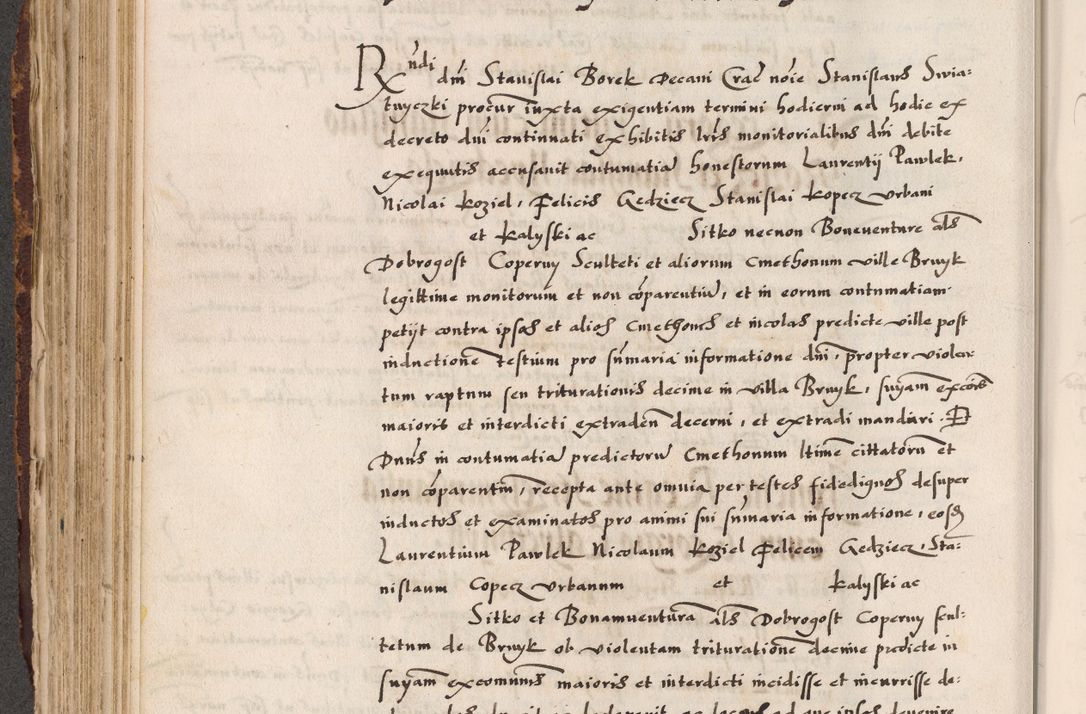 Rndi dni Stanislai Borek Decani Crac noie Stanislaus Swia-
tnyczki procur iuxta exigentiam termini hodierni ad hodie ex
decreto dni continuati exhibitis lris monitorialibus dni debite
exequutis accusavit contumatia honestorum Laurentij Pawlek,
Nicolai Koziel, Felicis Gedziecz Stanislai Kopecz Urbani
et Kalyski ac Sitko necnon Boneventure als
Dobrogost Coperny Sculteti et aliorum Cmethonum ville Brnyk
legittime monitorum et non coparentiu, et in eorum contumatiam
petijt contra ipsos et alios Cmethones et incolas predicte ville post
inductione testium pro sumaria informatione dni, propter violen-
tum raptum seu triturationis decime in villa Brnyk, suyam excois
maioris et interdicti extraden decerni, et extradi mandari. Et
Dnus in contumatia predictoru Cmethonum ltime cittatoru et
non coparentiu, recepta ante omnia per testes fidedignos desuper
inductos et examinatos pro animi sui sumaria informatione, eosd
Laurentium Pawlek Nicolaum Koziel Felicem Gedziecz, Sta-
nislaum Copecz Urbanum et Kalyski ac
Sitko et Bonamventura als Dobrogost Coperny scul-
tetum de Brnyk ob violentam trituratione decime predicte in
suyam excomunis maioris et interdicti incidisse et incurrisse de-